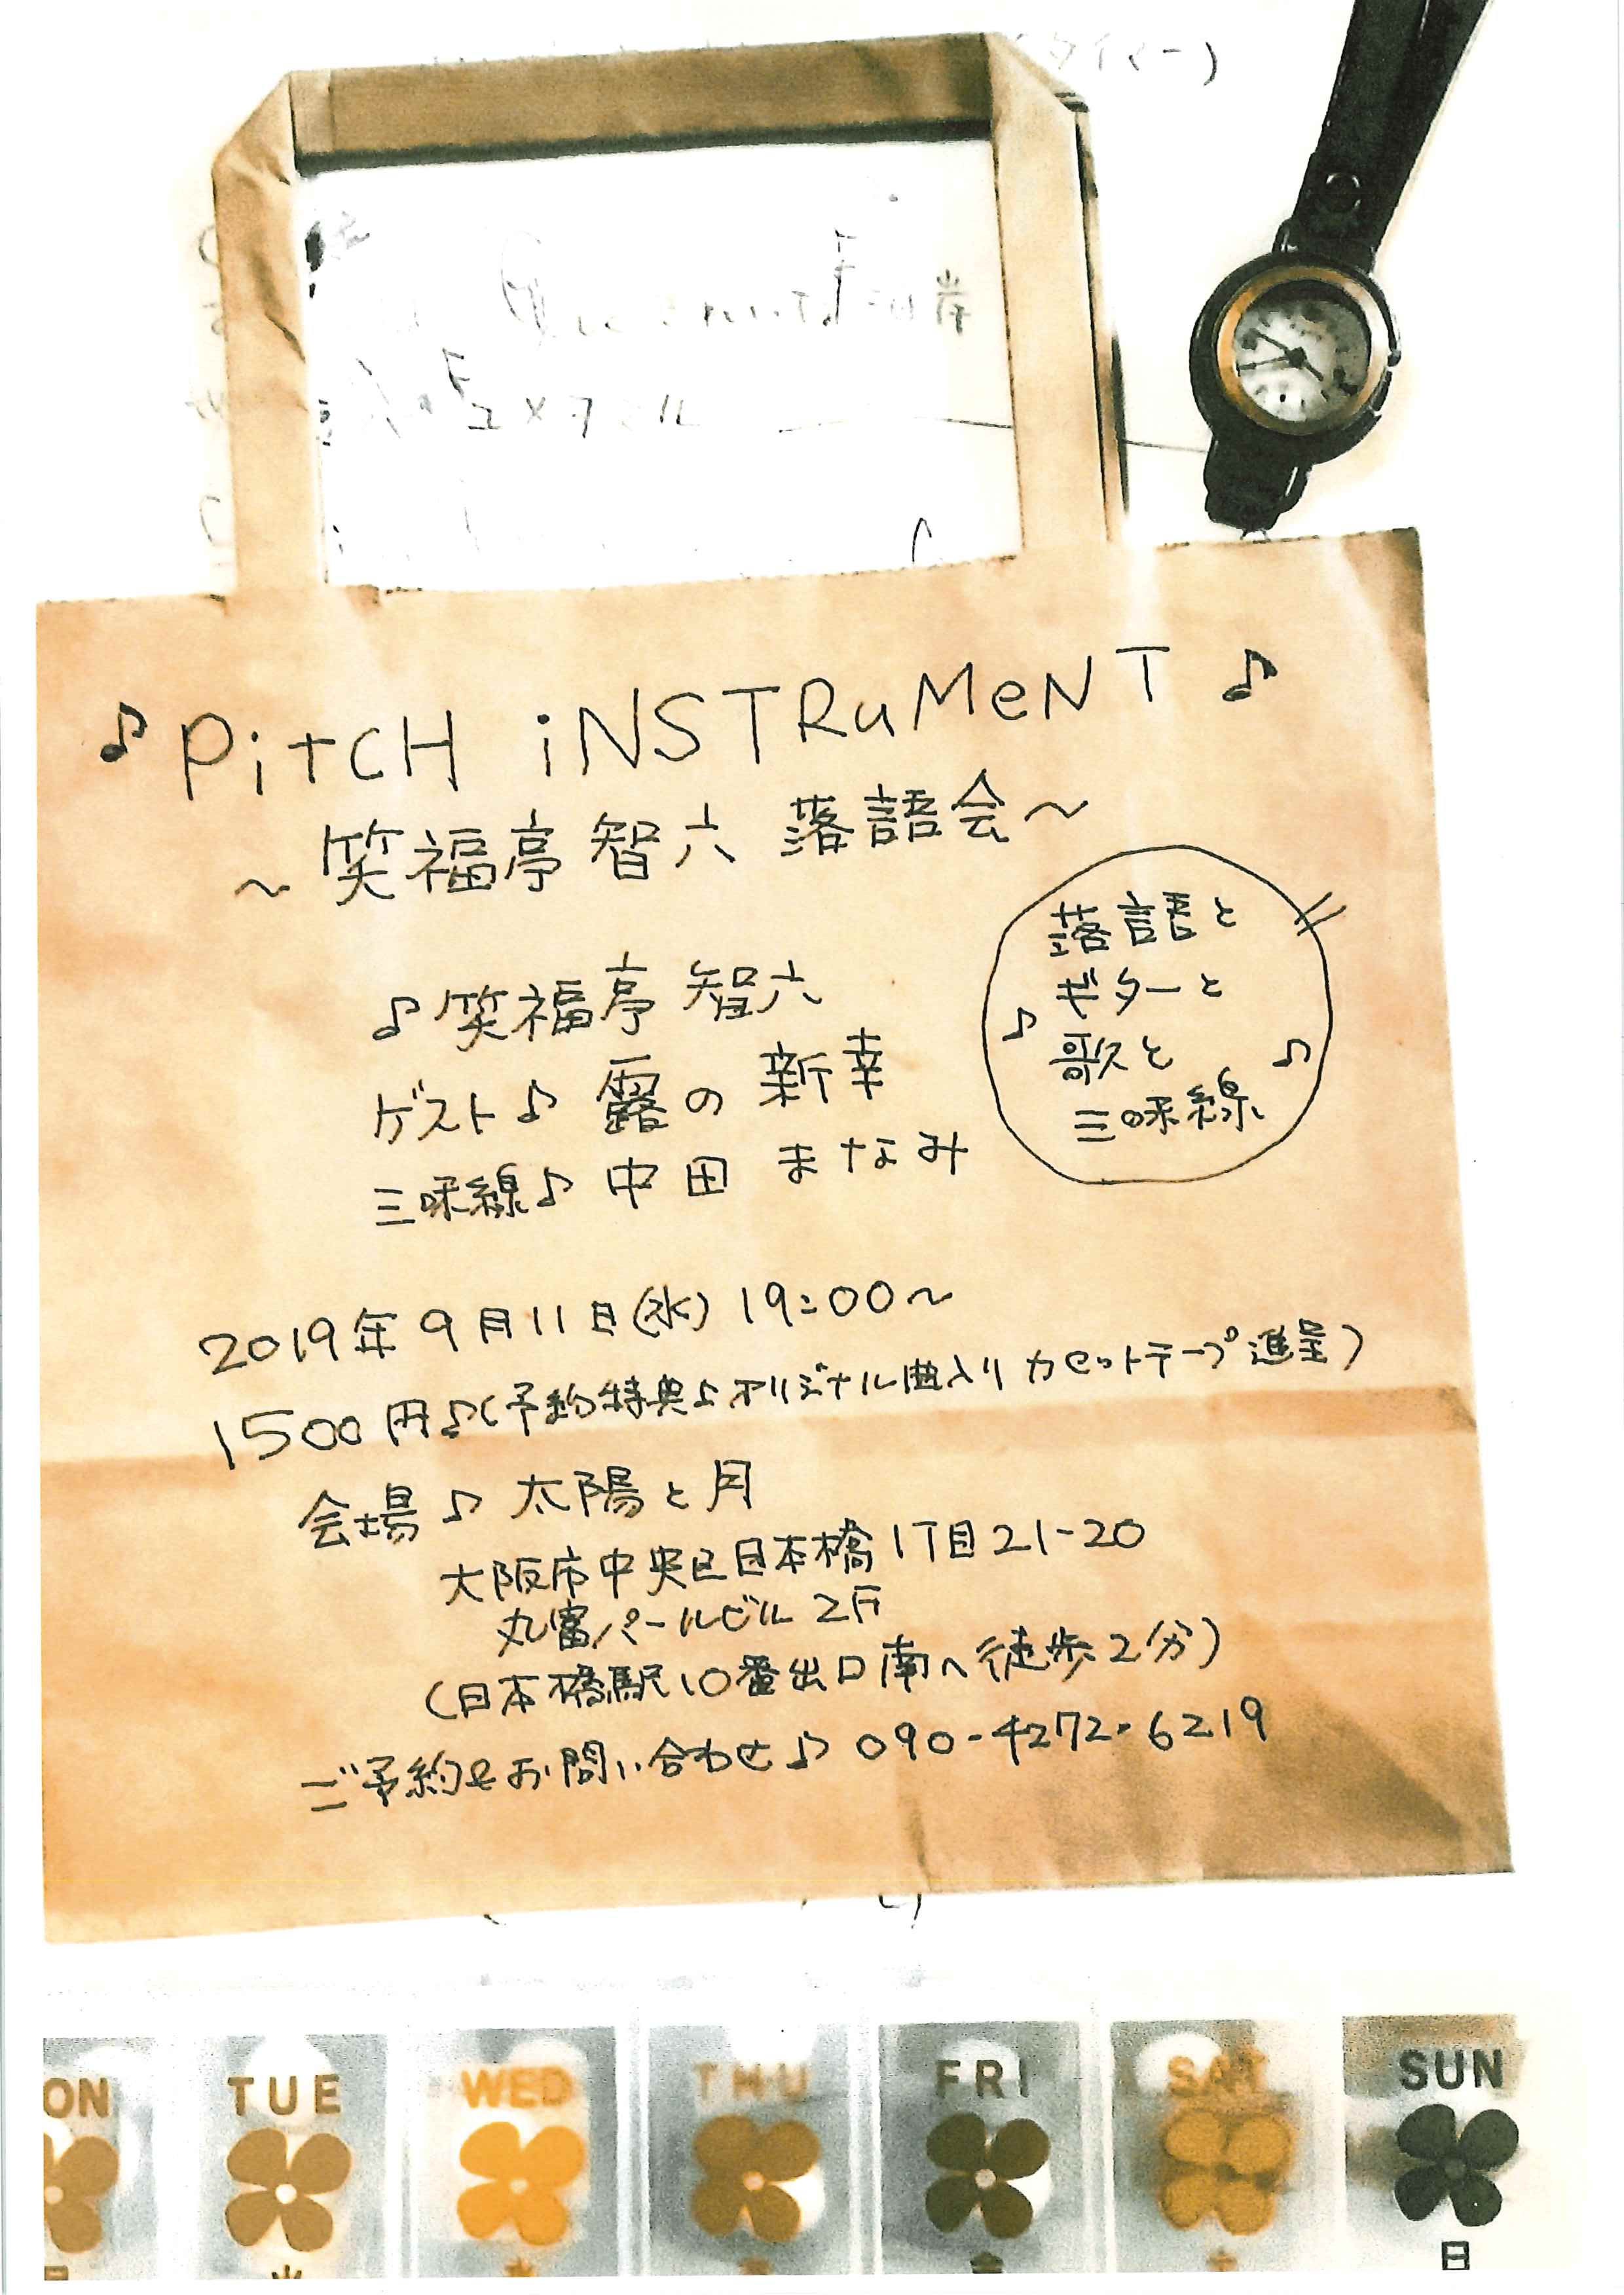 ♪ PiTCH iNSTRuMeNT ♪
～笑福亭 智六 落語会～
♪笑福亭 智六
ゲスト♪ 露の 新幸
三味線♪ 中田 まなみ
落語と
ギターと
♪ 歌と ♪
三味線
2019年9月11日(水) 19:00～
1500円♪(予約特典♪オリジナル曲入りカセットテープ進呈)
会場♪ 太陽と月
大阪市中央区日本橋1丁目21-20
丸富パールビル2F
(日本橋駅10番出口南へ徒歩2分)
ご予約＆お問い合わせ♪ 090-4272-6219
ON TUE WED THU FRI SAT SUN
日